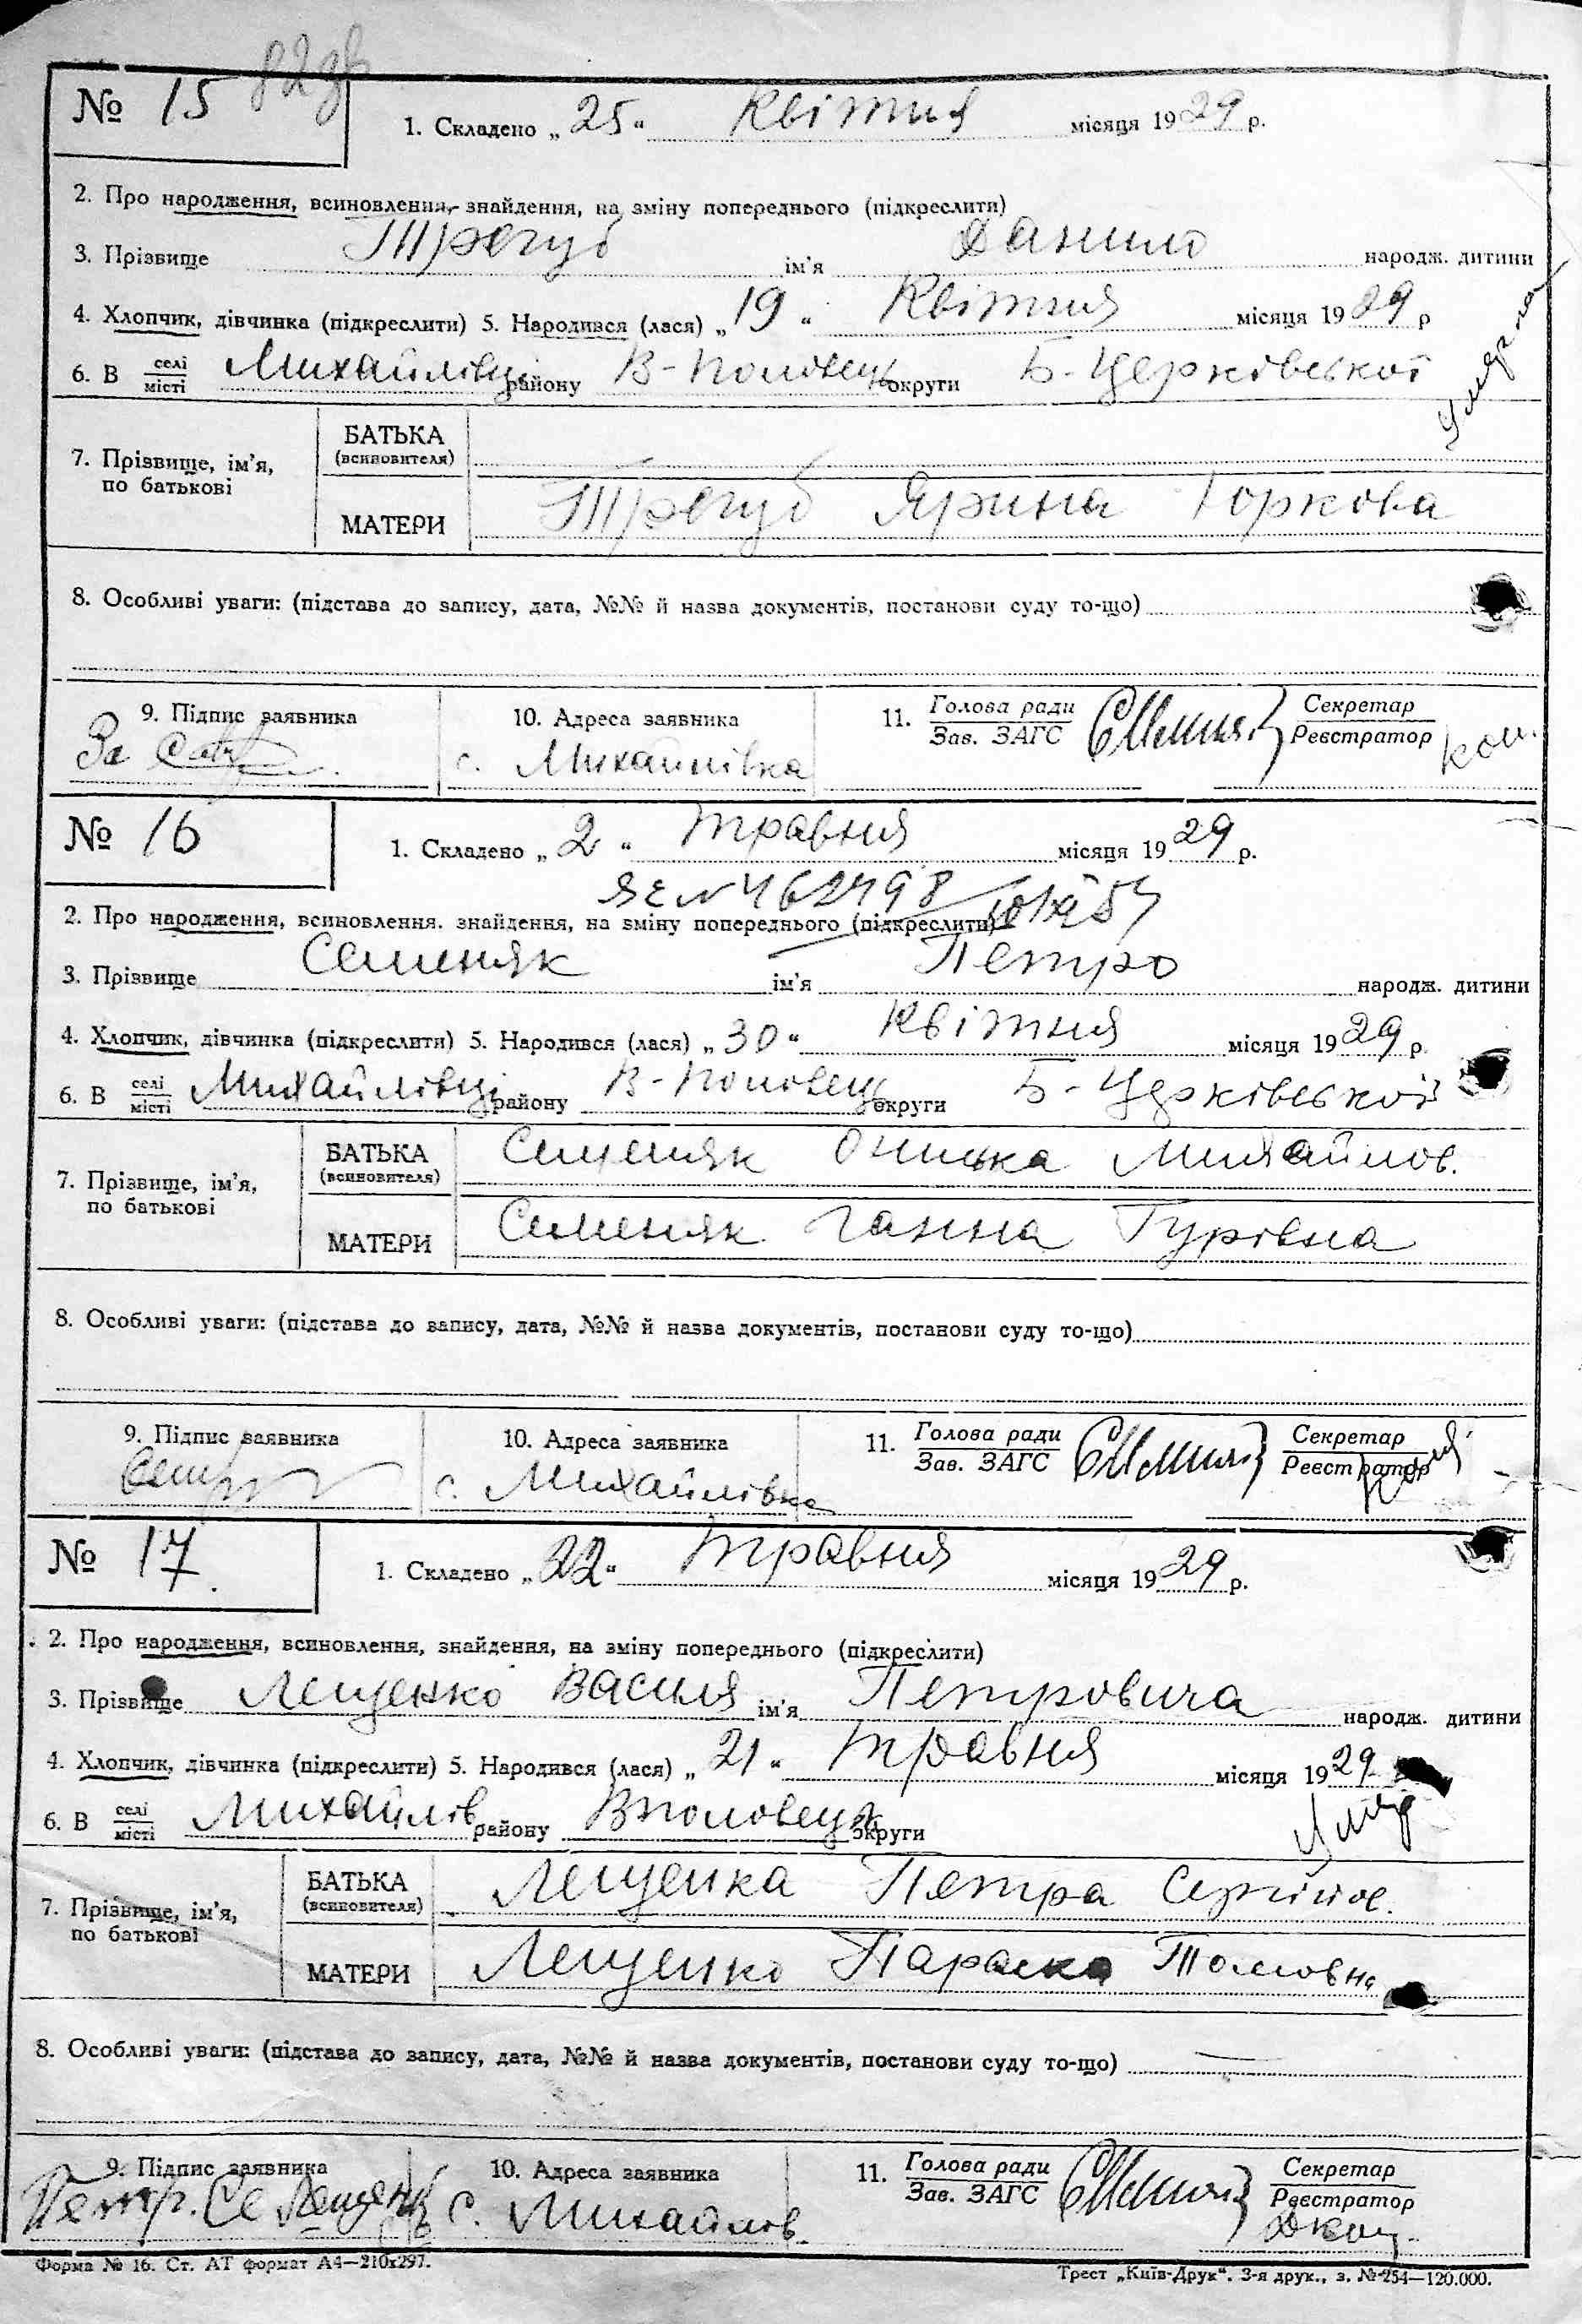 82 зв
№ 15
1. Складено „25“ Квітня місяця 1929 р.
2. Про народження, всиновлення, знайдення, на зміну попереднього (підкреслити)
3. Прізвище Трегуб ім'я Данило народж. дитини
4. Хлопчик, дівчинка (підкреслити) 5. Народився (лася) „19“ Квітня місяця 1929 р
6. В селі місті Михайлівці району В-Половець округи Б-Церківської
7. Прізвище, ім'я, по батькові
БАТЬКА (всиновителя)
МАТЕРИ Трегуб Ярина
8. Особливі уваги: (підстава до запису, дата, №№ й назва документів, постанови суду то-що)
9. Підпис заявника
10. Адреса заявника
11. Голова ради Зав. ЗАГС
Секретар Реєстратор
За
с. Михайлівка
№ 16
1. Складено „2“ травня місяця 1929 р.
2. Про народження, всиновлення. знайдення, на зміну попереднього (підкреслити)
3. Прізвище Семеняк ім'я Петро народж. дитини
4. Хлопчик, дівчинка (підкреслити) 5. Народився (лася) „30“ Квітня місяця 1929 р
6. В селі місті Михайлівці району В-Половець округи Б-Церківської
7. Прізвище, ім'я, по батькові
БАТЬКА (всиновителя) Семеняк Онилька Михайлов.
МАТЕРИ Семеняк Ганна Гурівна
8. Особливі уваги: (підстава до запису, дата, №№ й назва документів, постанови суду то-що)
9. Підпис заявника
10. Адреса заявника
11. Голова ради Зав. ЗАГС
Секретар Реєстратор
с. Михайлівка
№ 17.
1. Складено „22“ травня місяця 1929 р.
2. Про народження, всиновлення, знайдення, на зміну попереднього (підкреслити)
3. Прізвище Лещенко Василя ім'я Петровича народж. дитини
4. Хлопчик, дівчинка (підкреслити) 5. Народився (лася) „21“ травня місяця 1929
6. В селі місті Михайлів району Вполовецьк округи
7. Прізвище, ім'я, по батькові
БАТЬКА (всиновителя) Лещенка Петра Сергійов.
МАТЕРИ Лещенко Параска Томовна
8. Особливі уваги: (підстава до запису, дата, №№ й назва документів, постанови суду то-що)
9. Підпис заявника
10. Адреса заявника
11. Голова ради Зав. ЗАГС
Секретар Реєстратор
Петр. Се Лещенк
с. Михайлов
Форма № 16. Ст. АТ формат А4—210х297.
Трест „Київ-Друк“. 3-я друк., з. № 254—120.000.